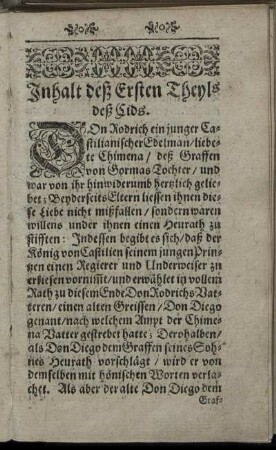 Inhalt deß Ersten Theyls
deß Cids.
DOn Rodrich ein junger Ca-
stilianischer Edelman / liebe-
te Chimena / deß Graffen
von Gormas Tochter / und
war von ihr hinwiderumb hertzlich gelie-
bet: Beyderseits Eltern liessen ihnen die-
se Liebe nicht mißfallen / sondern waren
willens under ihnen einen Heurath zu
stifften: Indessen begibt es sich / daß der
König von Castilien seinem jungen Prin-
tzen einen Regierer und Underweiser zu
erkiesen vornim̃t / und erwählet in vollem
Rath zu diesem Ende Don Rodrichs Vat-
teren / einen alten Greissen / Don Diego
genant / nach welchem Ampt der Chime-
na Vatter gestrebet hatte: Derohalben /
als Don Diego dem Graffen seines Soh-
nes Heurath vorschlägt / wird er von
demselben mit hönischen Worten verla-
chet. Als aber der alte Don Diego dem
Graf-